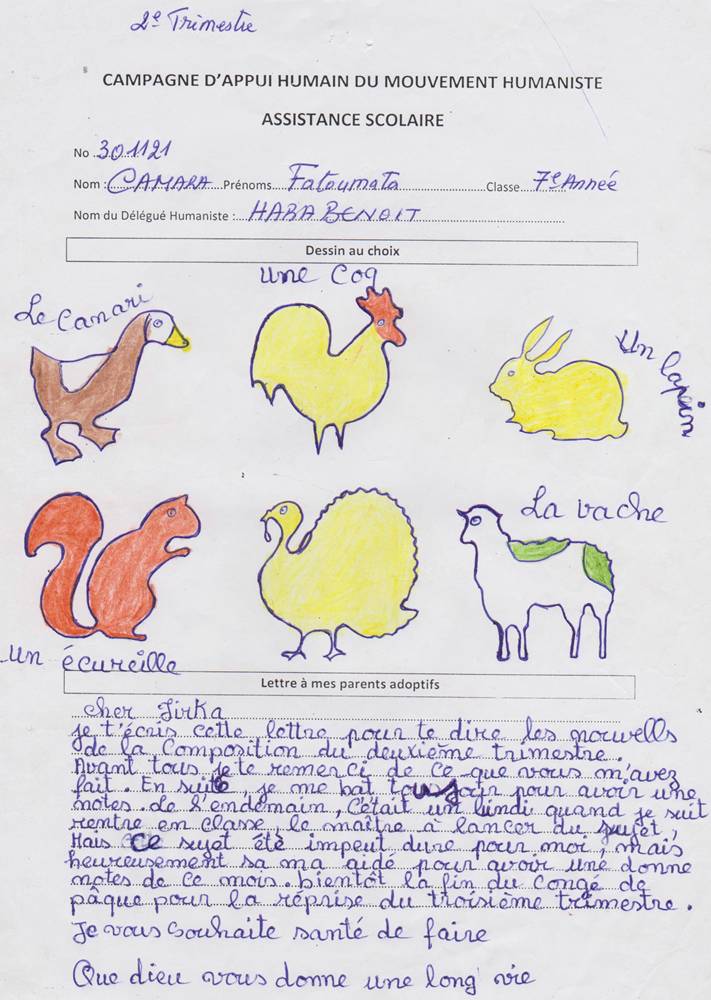 2e Trimestre
CAMPAGNE D'APPUI HUMAIN DU MOUVEMENT HUMANISTE
ASSISTANCE SCOLAIRE
No 301121
Nom : CAMARA Prénoms Fatoumata Classe 7e Année
Nom du Délégué Humaniste : HABA BENOIT
Dessin au choix
Le Canari
une Coq
Un lapin
Un écureille
La vache
Lettre à mes parents adoptifs
cher Jirka
je t'écris cette lettre pour te dire les nouvells
de la Composition du deuxième trimestre.
Avant tous je te remerci de ce que vous m'avez
fait. En suite, je me bat tous jour pour avoir une
notes. de l'endemain, C'était un lundi quand je suit
rentre en classe, le maître à lancer du sujet,
Mais ce sujet été impeut dure pour moi, mais
heureusement sa ma aidé pour avoir une donne
notes de ce mois. bientôt la fin du Congé de
pâque pour la réprise du troisième trimestre.
Je vous souhaite santé de faire
Que dieu vous donne une long vie